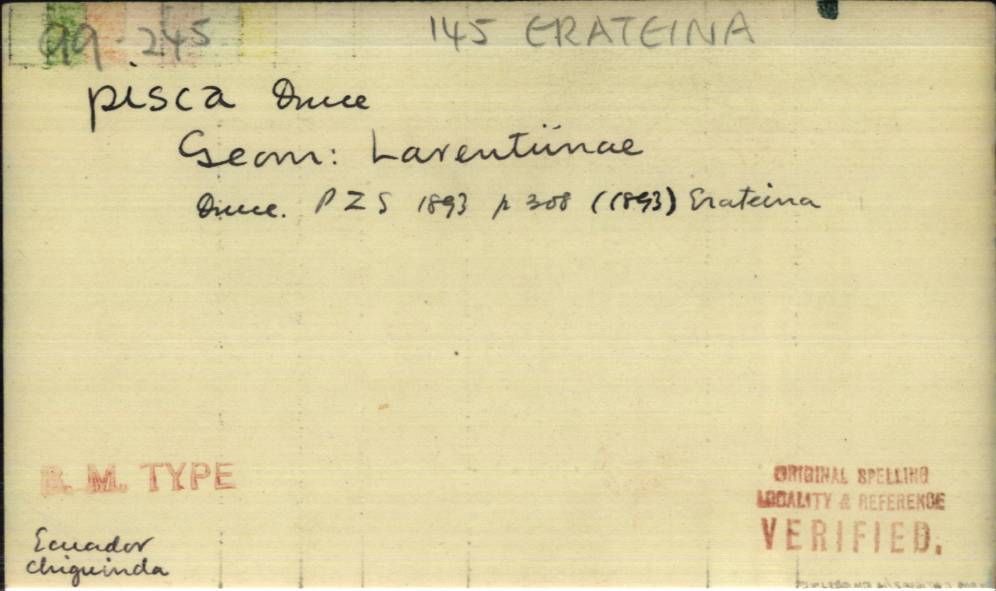 99.245 145 ERATEINA
pisca Druce
Geom: Larentiinae
Druce. P Z S 1893 p 308 (1893) Erateina
B. M. TYPE
ORIGINAL SPELLING
LOCALITY & REFERENCE
VERIFIED.
Ecuador
Chiguinda